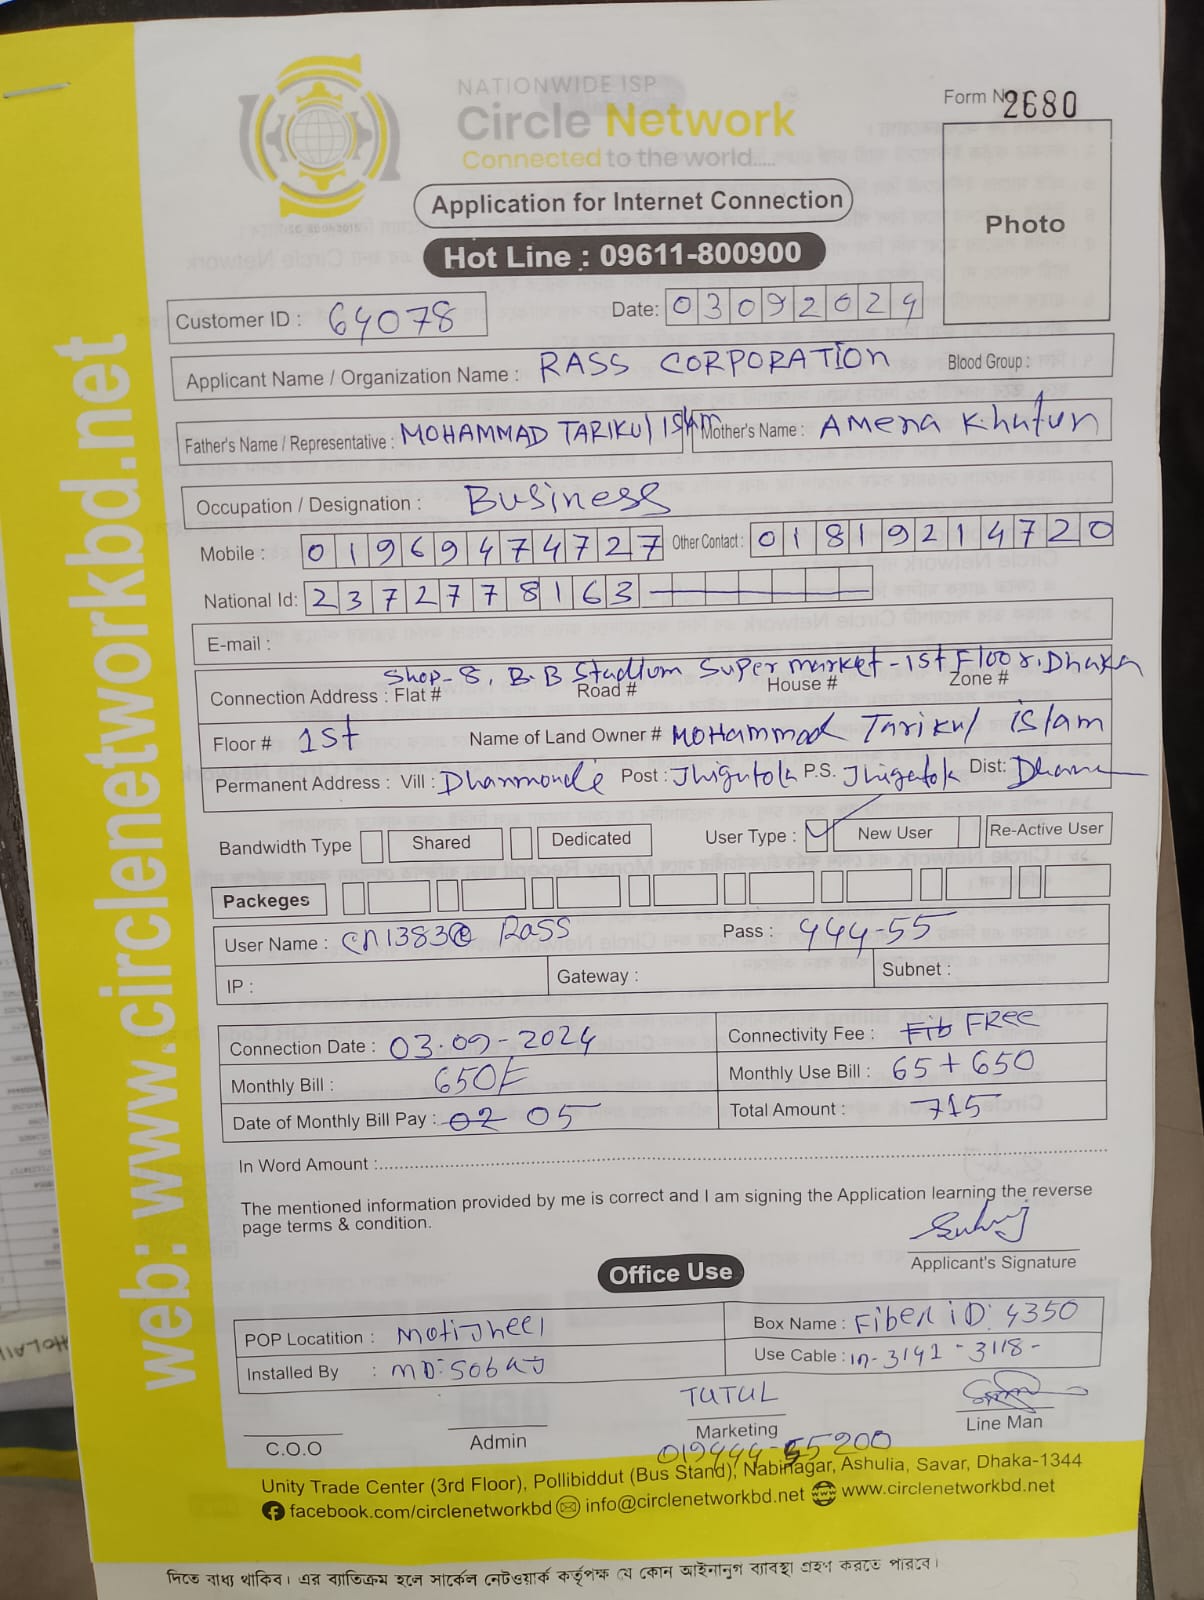 NATIONWIDE ISP
Circle Network
Connected to the world.....
Form No 2680
Application for Internet Connection
Photo
Hot Line : 09611-800900
Customer ID : 64078
Date: 03092024
Applicant Name / Organization Name : RASS CORPORATION Blood Group :
Father's Name / Representative : MOHAMMAD TARIKUL ISLAM Mother's Name : Amena Khatun
Occupation / Designation : Business
Mobile : 01969474727 Other Contact : 01819214720
National Id: 2372778163
E-mail :
Shop-8, B.B Stadium Super market-1st Floor. Dhaka
Connection Address : Flat # Road # House # Zone #
Floor # 1st Name of Land Owner # MOHammod Tarikul islam
Permanent Address : Vill : Dhanmondi Post : Jhigatola P.S. Jhigatola Dist:
Bandwidth Type Shared Dedicated User Type : New User Re-Active User
Packeges
User Name : cn1383@ Rass Pass : 444-55
IP : Gateway : Subnet :
Connection Date : 03.09-2024 Connectivity Fee : Fib FREE
Monthly Bill : 650/= Monthly Use Bill : 65 + 650
Date of Monthly Bill Pay : 02 05 Total Amount : 715
In Word Amount :
The mentioned information provided by me is correct and I am signing the Application learning the reverse
page terms & condition.
Applicant's Signature
Office Use
POP Locatition : Motijheel Box Name : Fiber iD: 4350
Installed By : MD: Sobuj Use Cable : in-3141 - 3118-
TUTUL
C.O.O Admin Marketing Line Man
019444-55200
Unity Trade Center (3rd Floor), Pollibiddut (Bus Stand), Nabinagar, Ashulia, Savar, Dhaka-1344
facebook.com/circlenetworkbd info@circlenetworkbd.net www.circlenetworkbd.net
দিতে বাধ্য থাকিব। এর ব্যতিক্রম হলে সার্কেল নেটওয়ার্ক কর্তৃপক্ষ যে কোন আইনানুগ ব্যবস্থা গ্রহণ করতে পারবে।
web: www.circlenetworkbd.net